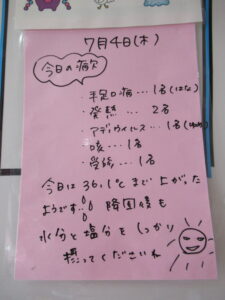 7月4日(木)
今日の病欠
・手足口病…1名(はな)
・発熱…2名
・アデノウイルス…1名
・咳…1名
・受診…1名
今日は36.1℃まで上がった
ようです。降園後も
水分と塩分をしっかり
摂ってくださいね